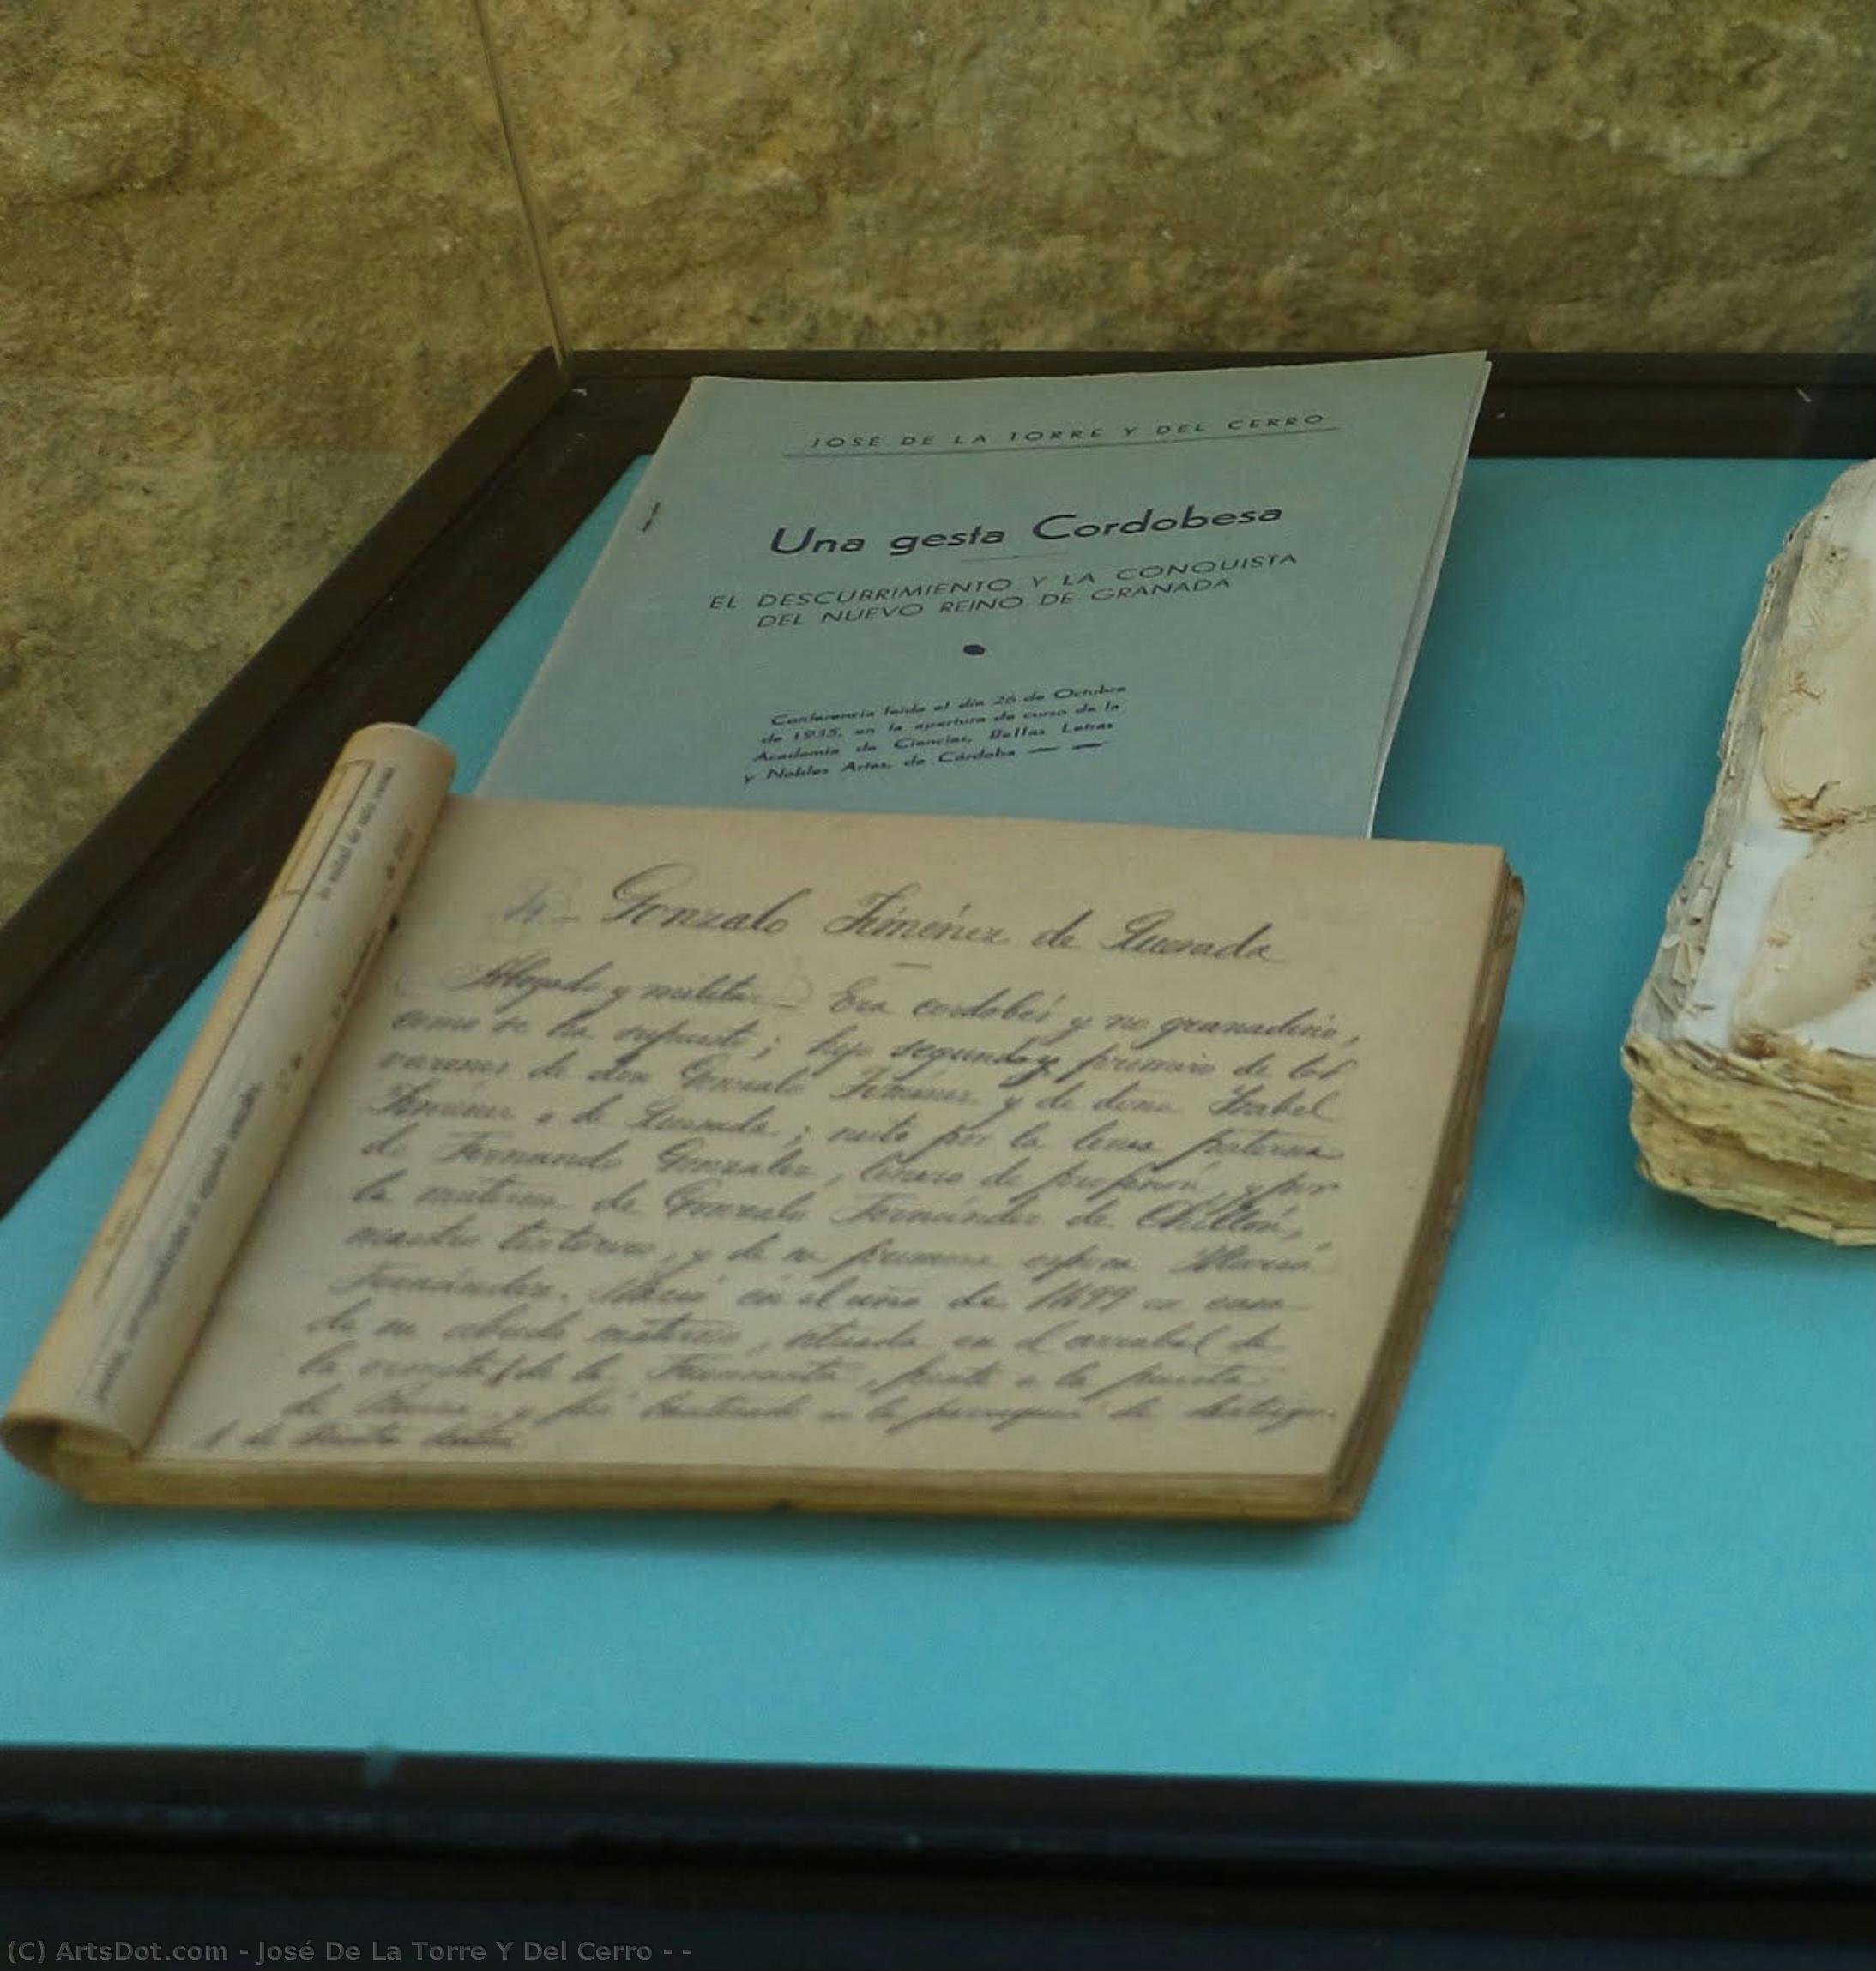 JOSÉ DE LA TORRE Y DEL CERRO
Una gesta Cordobesa
EL DESCUBRIMIENTO Y LA CONQUISTA
DEL NUEVO REINO DE GRANADA
Conferencia leída el día 26 de Octubre
de 1935, en la apertura de curso de la
Academia de Ciencias, Bellas Letras
y Nobles Artes, de Córdoba — —
Gonzalo Jiménez de Quesada
Abogado y militar — Era cordobés y no granadino,
como se ha supuesto; hijo segundo y primero de los
varones de don Gonzalo Jiménez y de doña Isabel
Jiménez o de Quesada; nieto por la línea paterna
de Fernando González, lencero de profesión, y por
la materna de Gonzalo Fernández de Chillón,
maestro tintorero, y de su primera esposa María
Fernández. Nació en el año de 1499 en casa
de su abuelo materno, situada en el arrabal de
la ermita de la Fuensanta, frente a la puerta
de Baeza, y fué bautizado en la parroquia de Santiago.
(C) ArtsDot.com - José De La Torre Y Del Cerro - -